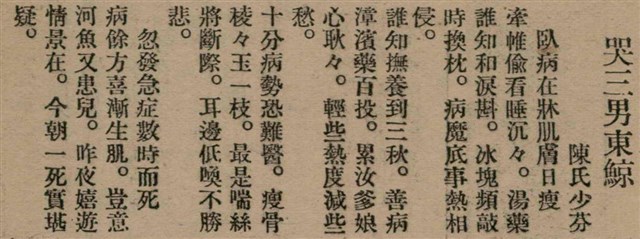 哭三男東鯨
陳氏少芬
臥病在牀肌膚日瘦
牽帷偸看睡沉々。湯藥
誰知和淚斟。冰塊頻敲
時換枕。病魔底事熱相
侵。
誰知撫養到三秋。善病
漳濱藥百投。累汝爹娘
心耿々。輕些熱度減些
愁。
十分病勢恐難醫。瘦骨
棱々玉一枝。最是喘絲
將斷際。耳邊低喚不勝
悲。
忽發急症數時而死
病餘方喜漸生肌。豈意
河魚又患兒。昨夜嬉遊
情景在。今朝一死實堪
疑。